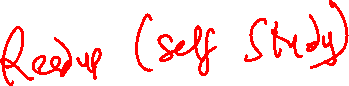 Readup (self study)